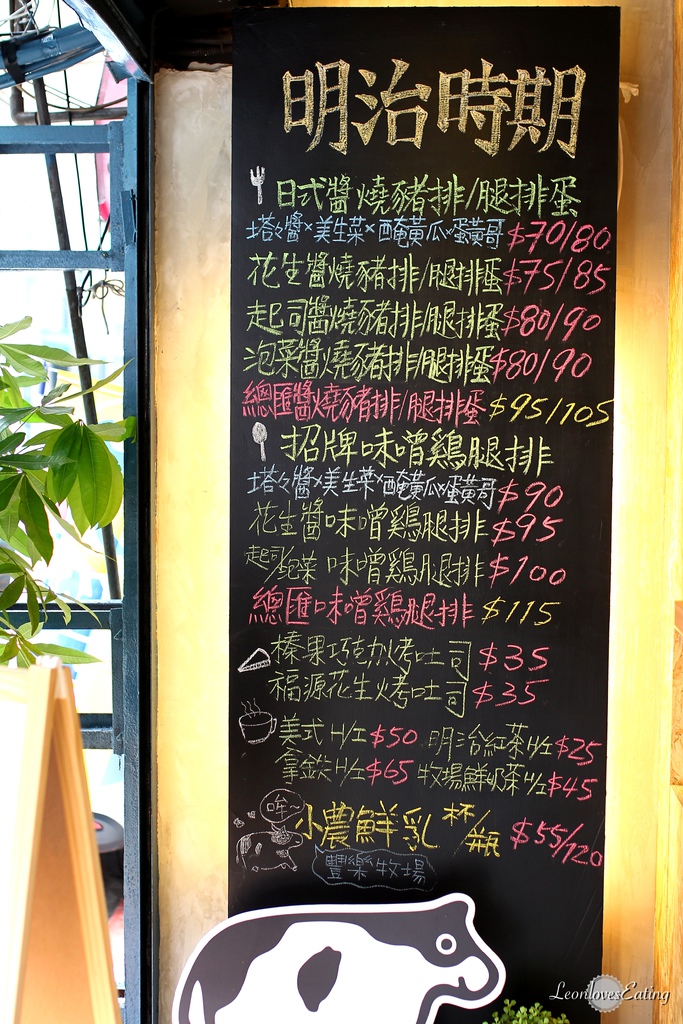 明治時期
日式醬燒豬排/腿排蛋
塔々醬×美生菜×醃黃瓜×蛋黃哥 $70/80
花生醬燒豬排/腿排蛋 $75/85
起司醬燒豬排/腿排蛋 $80/90
泡菜醬燒豬排/腿排蛋 $80/90
總匯醬燒豬排/腿排蛋 $95/105
招牌味噌鷄腿排
塔々醬×美生菜×醃黃瓜×蛋黃哥 $90
花生醬味噌鷄腿排 $95
起司/泡菜 味噌鷄腿排 $100
總匯味噌鷄腿排 $115
榛果巧克力烤吐司 $35
福源花生烤吐司 $35
美式 H/I $50 明治紅茶H/I $25
拿鉄 H/I $65 牧場鮮奶茶H/I $45
哞~
小農鮮乳 杯/瓶 $55/120
豐樂牧場
LeonlovesEating